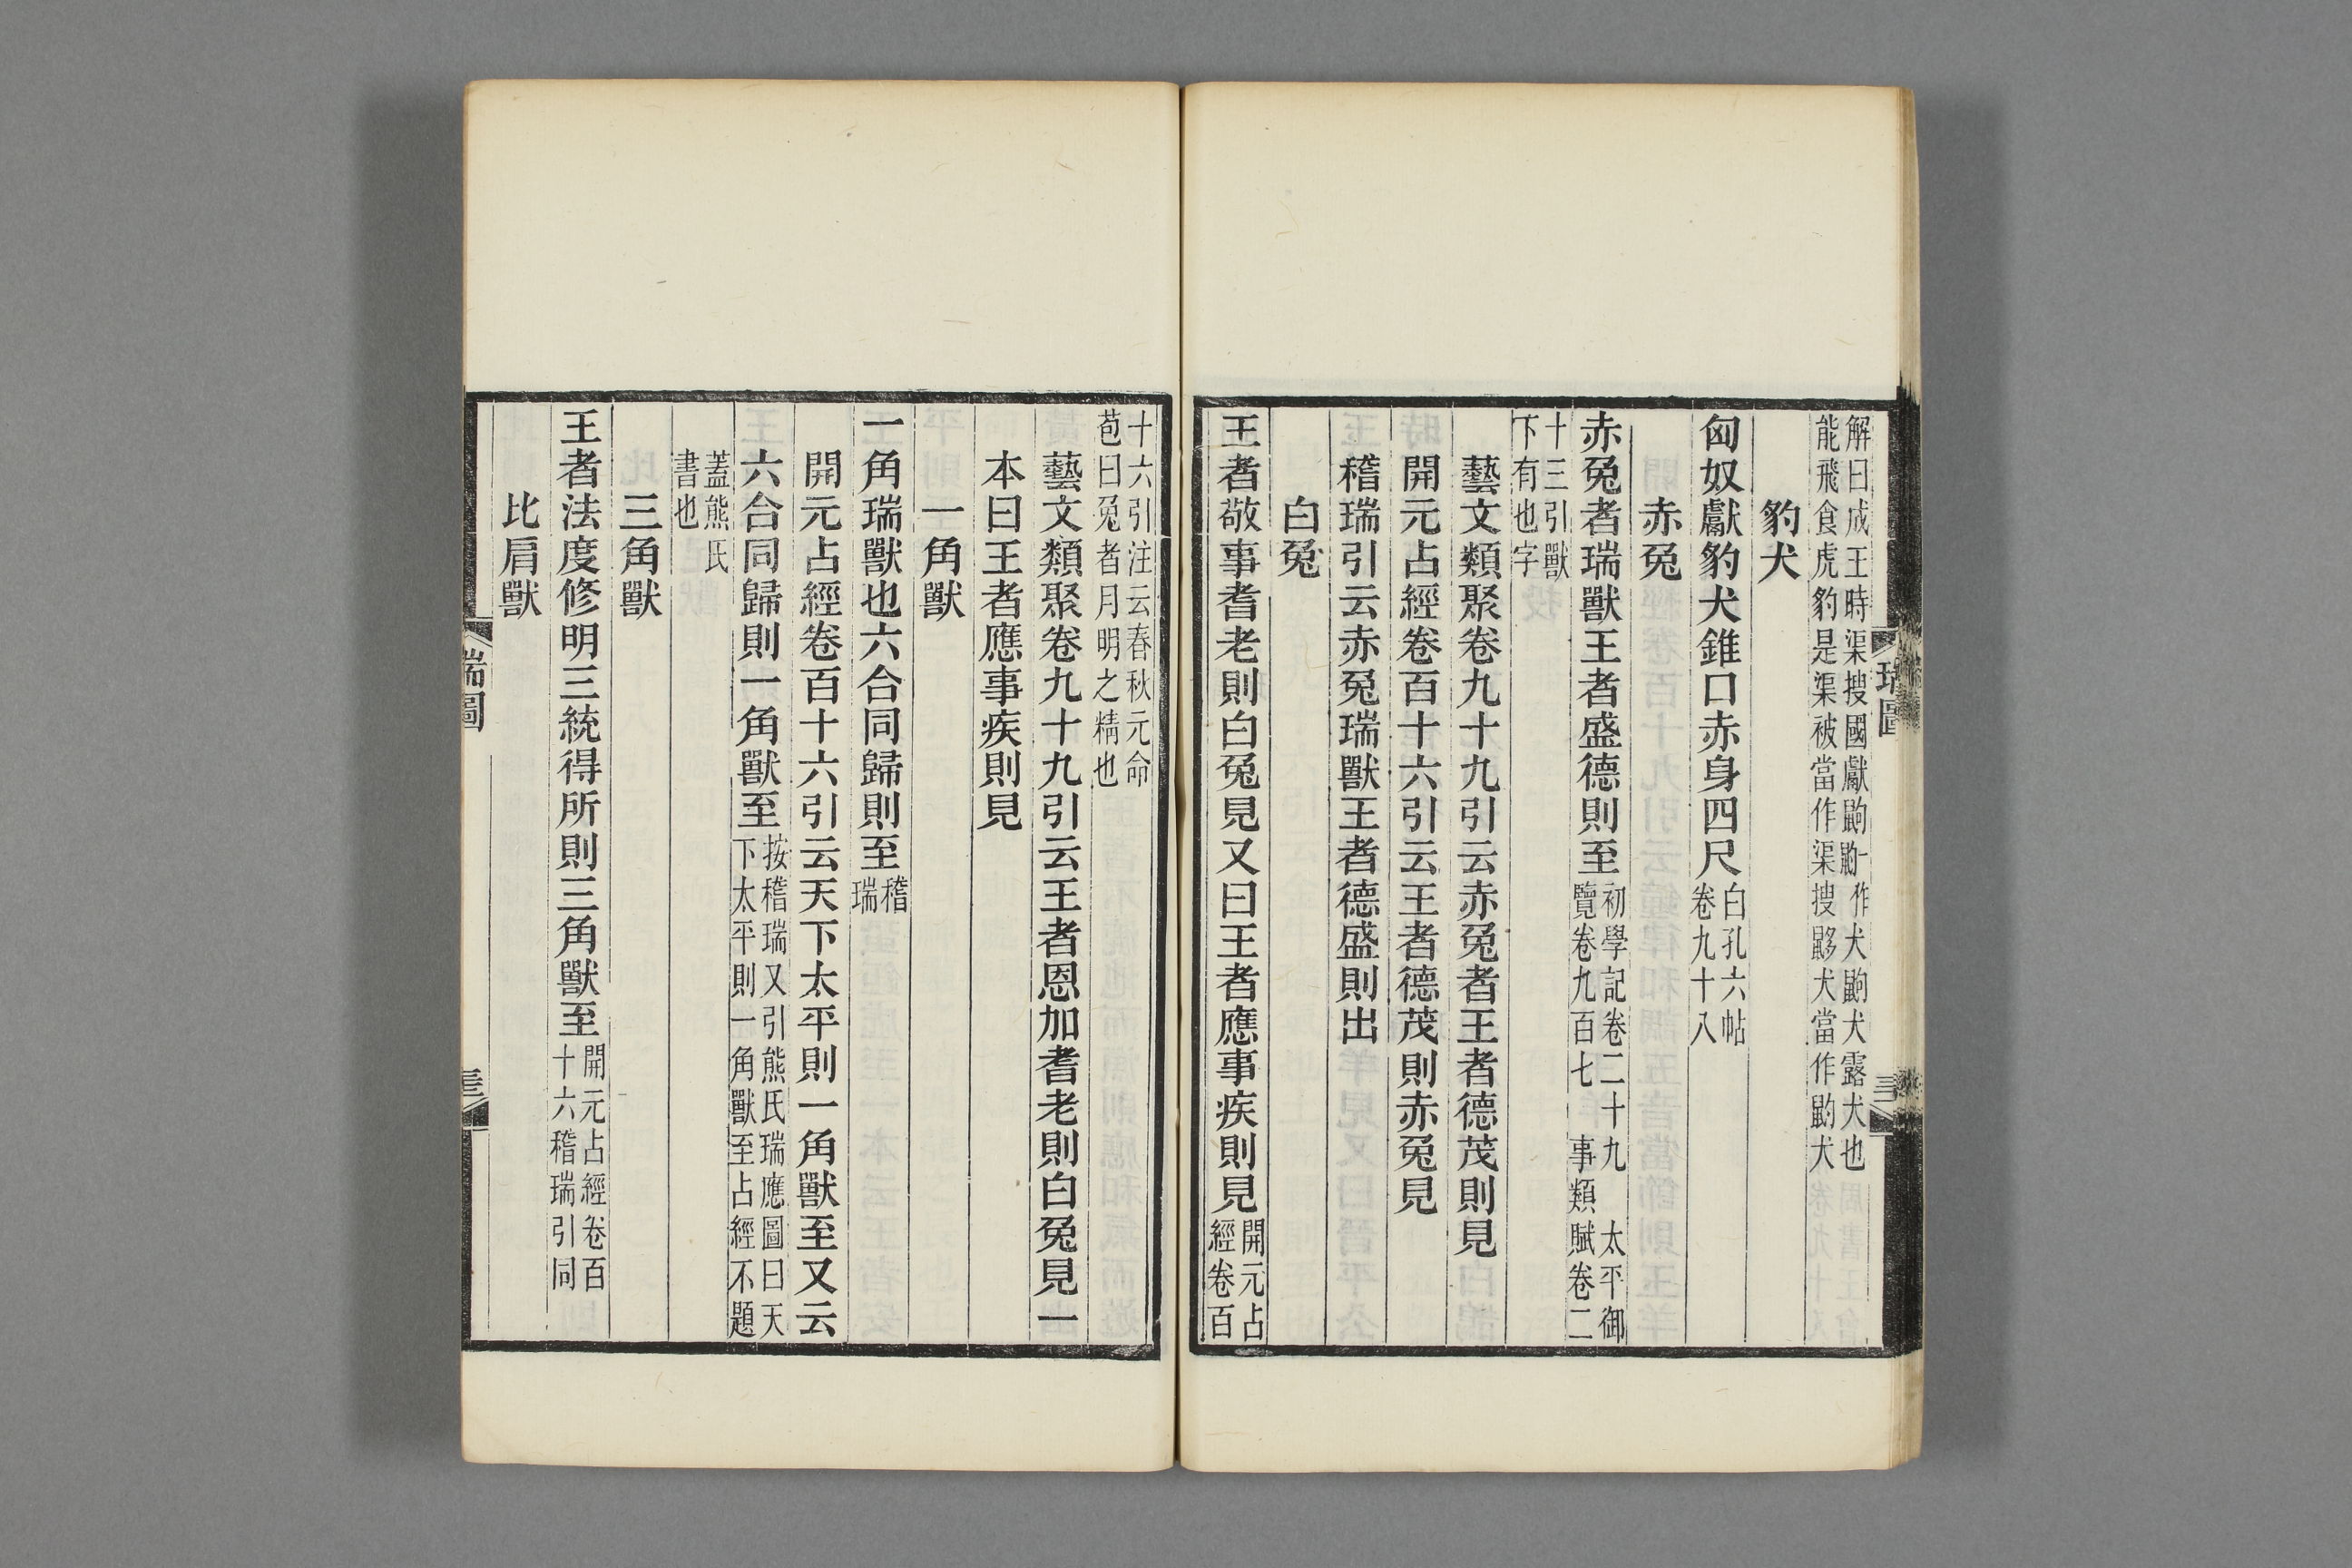 解曰成王時渠搜國獻䶂一作犬䶂犬露犬也
能飛食虎豹是渠被當作渠搜犬當作䶂犬
豹犬
匈奴獻豹犬錐口赤身四尺白孔六帖
卷九十八
赤兔
赤兔者瑞獸王者盛德則至初學記卷二十九 太平御
覽卷九百七 事類賦卷二
十三引獸
下有也字
藝文類聚卷九十九引云赤兔者王者德茂則見
開元占經卷百十六引云王者德茂則赤兔見
稽瑞引云赤兔瑞獸王者德盛則出
白兔
王者敬事耆老則白兔見又曰王者應事疾則見開元占
經卷百
瑞圖
三
十六引注云春秋元命
苞曰兔者月明之精也
藝文類聚卷九十九引云王者恩加耆老則白兔見一
本曰王者應事疾則見
一角獸
一角瑞獸也六合同歸則至稽
瑞
開元占經卷百十六引云天下太平則一角獸至又云
六合同歸則一角獸至按稽瑞又引熊氏瑞應圖曰天
下太平則一角獸至占經不題
蓋熊氏
書也
三角獸
王者法度修明三統得所則三角獸至開元占經卷百
十六稽瑞引同
比肩獸
瑞圖